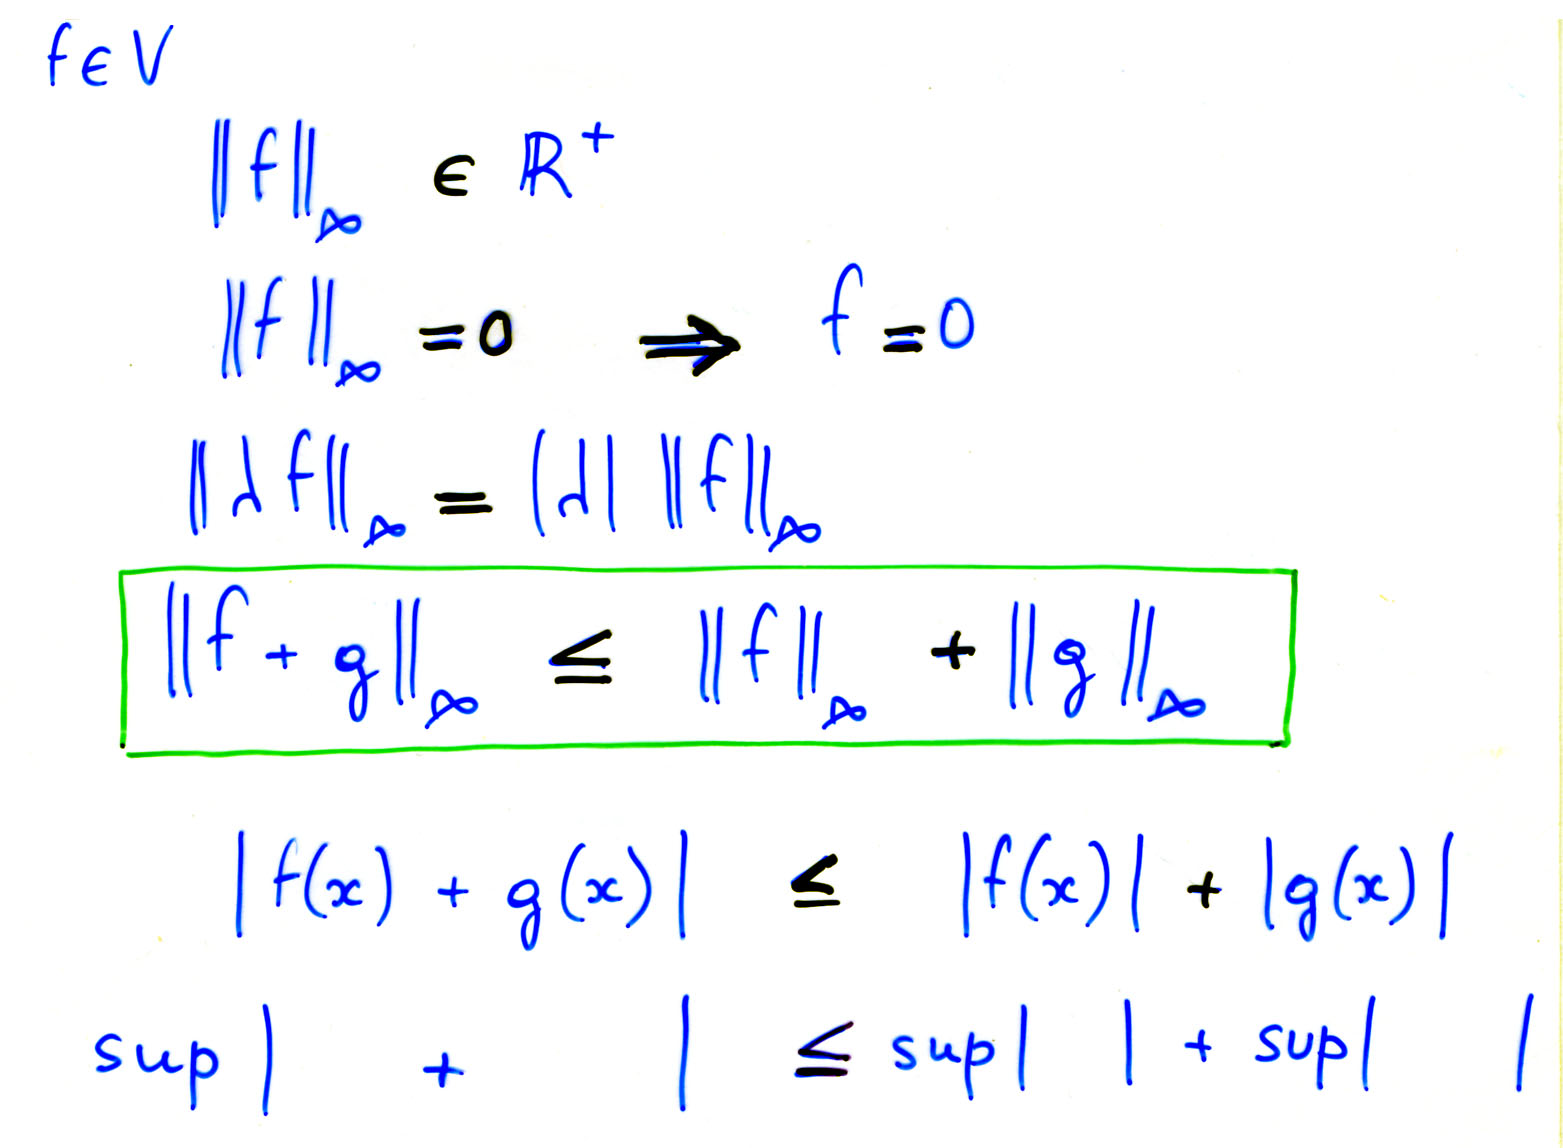 f ∈ V
‖f‖∞ ∈ ℝ⁺
‖f‖∞ = 0 ⇒ f = 0
‖λf‖∞ = |λ| ‖f‖∞
‖f + g‖∞ ≤ ‖f‖∞ + ‖g‖∞
|f(x) + g(x)| ≤ |f(x)| + |g(x)|
sup |   +   | ≤ sup |   | + sup |   |